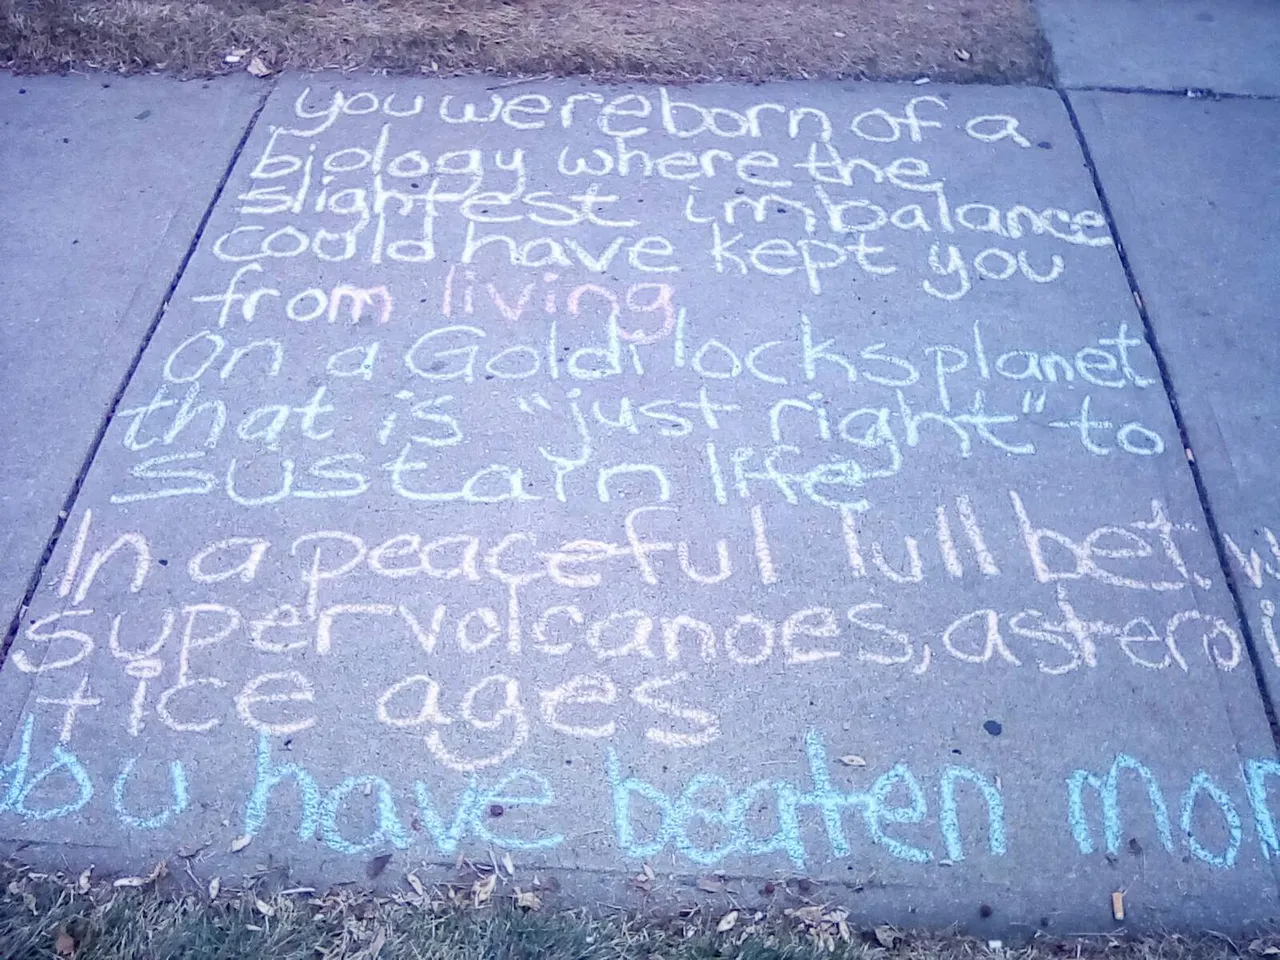 you were born of a
biology where the
slightest imbalance
could have kept you
from living
On a Goldilocks planet
that is "just right" to
sustain life
In a peaceful lull betw
supervolcanoes, asteroi
+ ice ages
You have beaten mor